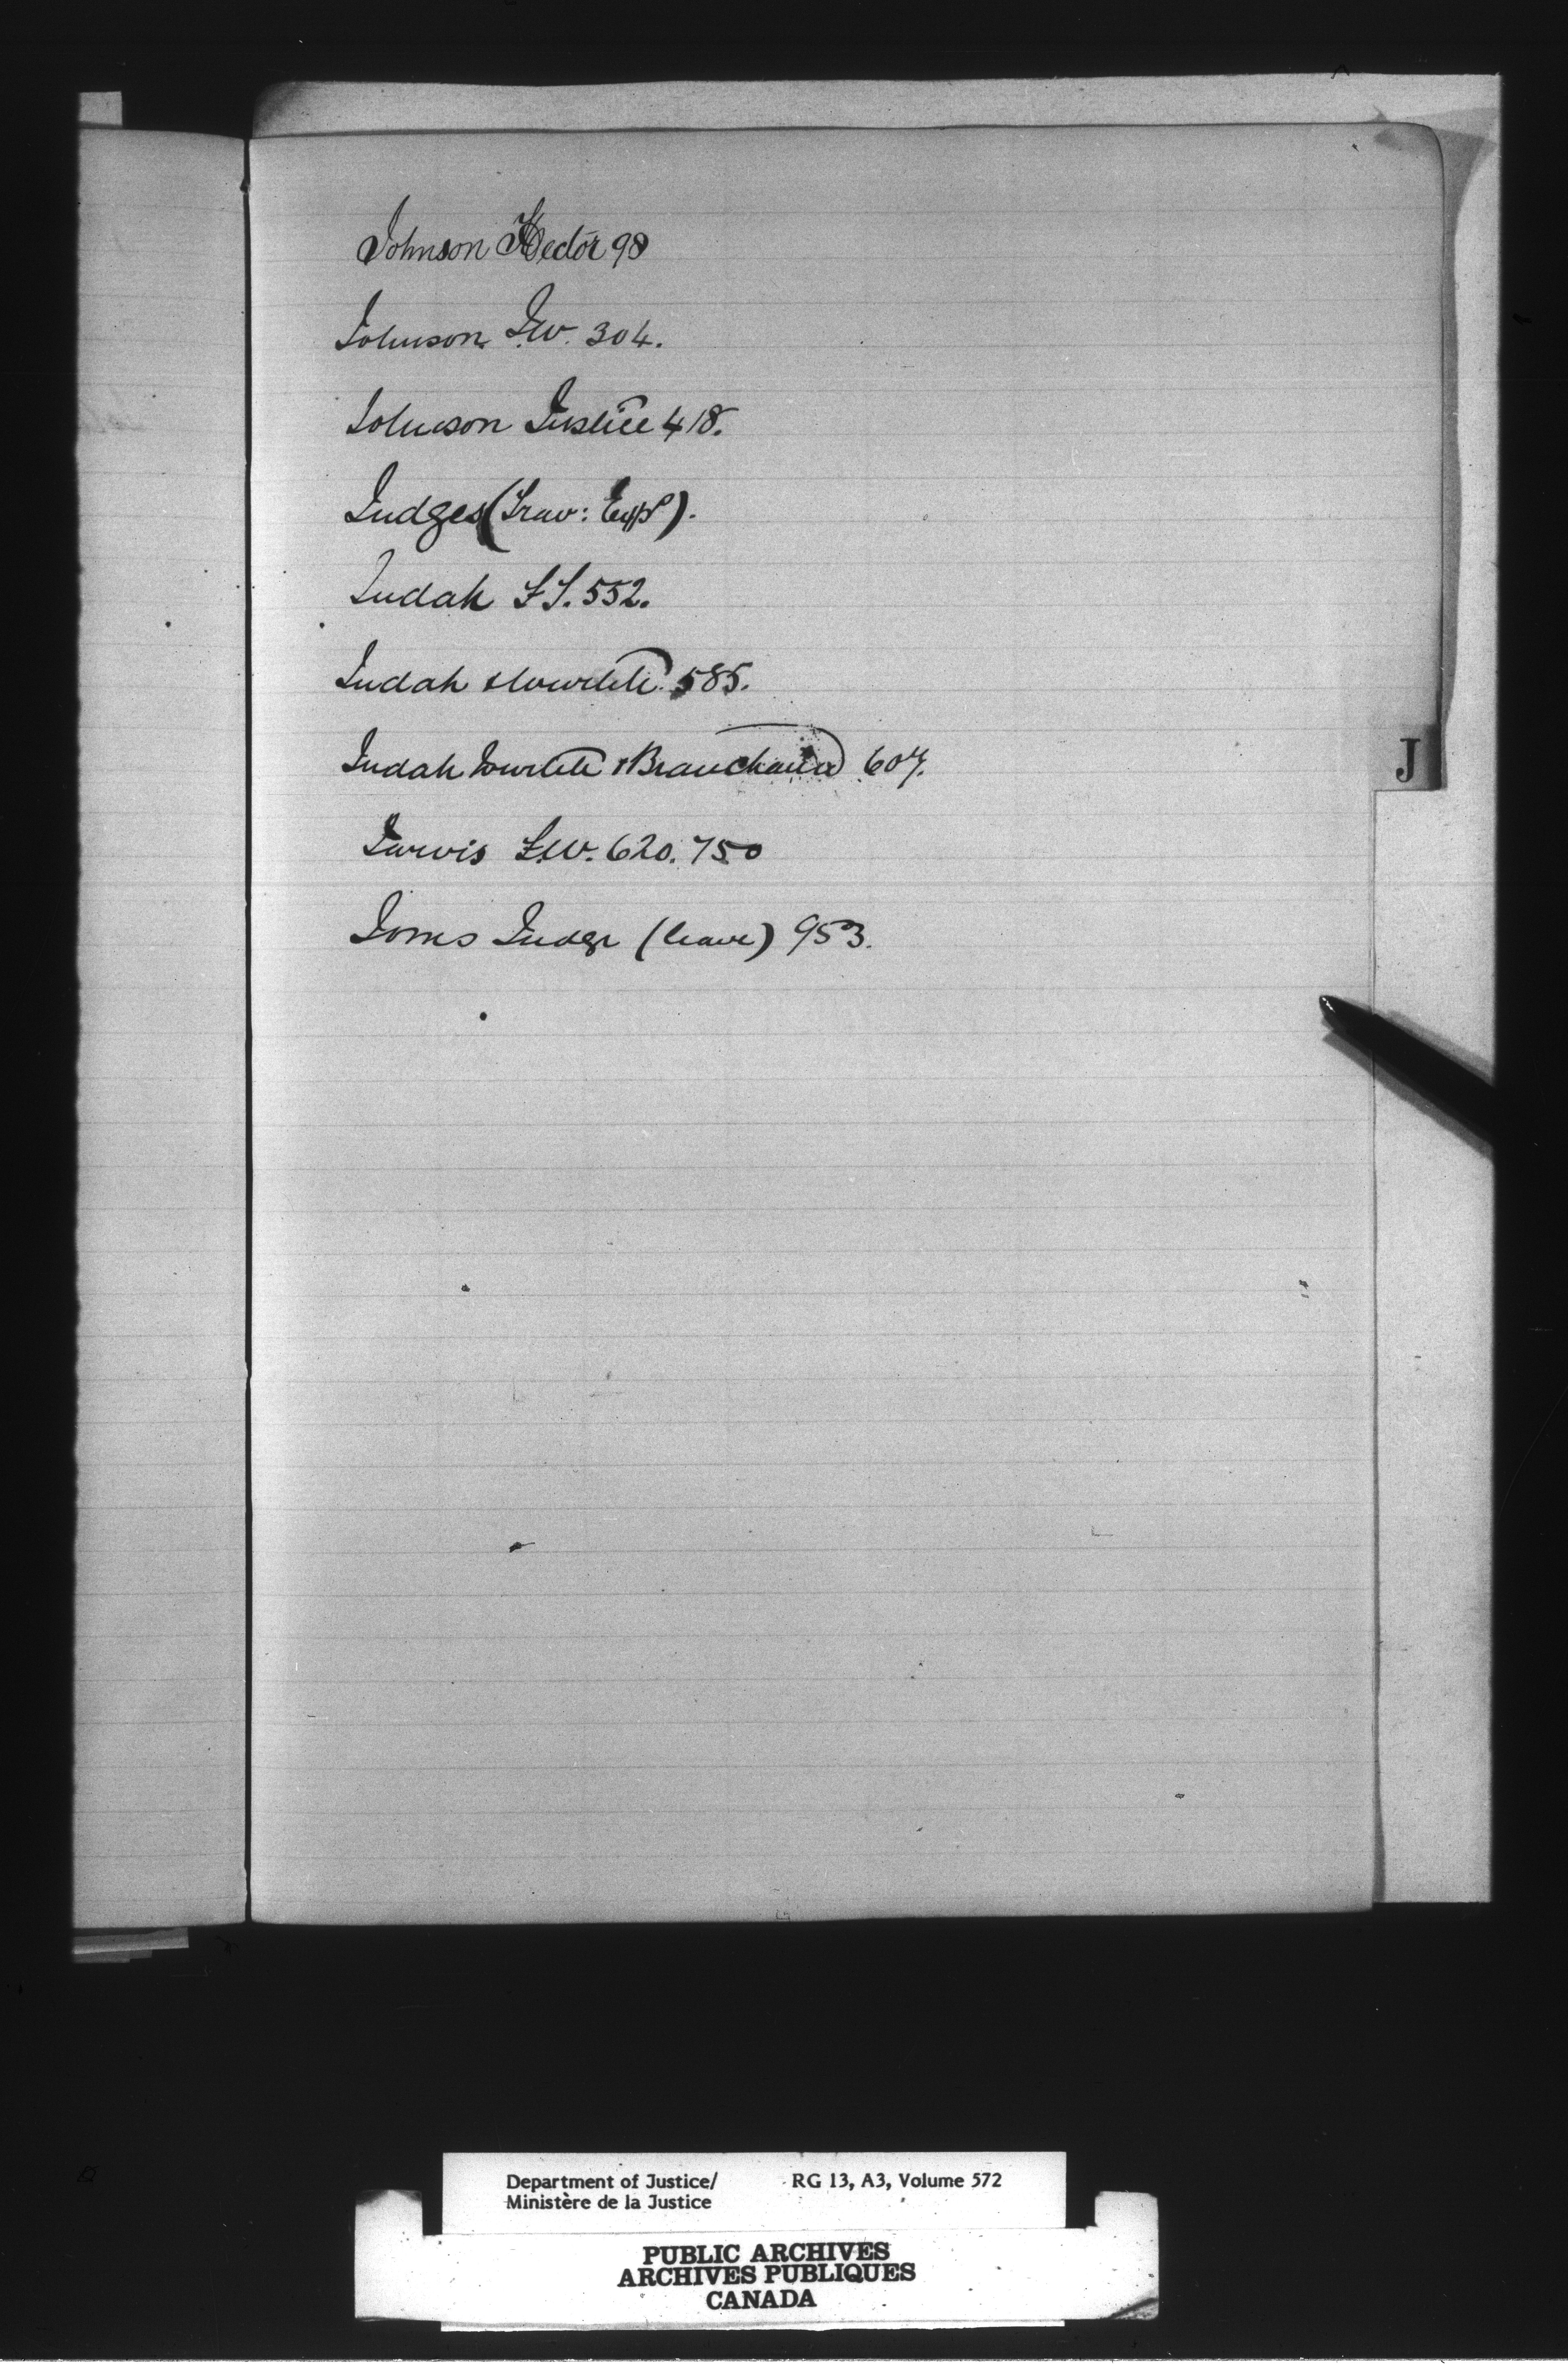 Johnson Hector 98
Johnson J.W. 304.
Johnson Justice 418.
Judges (Trav: Exps).
Judah F.T. 552.
Judah & Wurtele. 585.
Judah Wurtele & Branchaud 607.
J
Jarvis F.W. 620. 750
Jones Judge (leave) 953.
Department of Justice/ RG 13, A3, Volume 572
Ministère de la Justice
PUBLIC ARCHIVES
ARCHIVES PUBLIQUES
CANADA